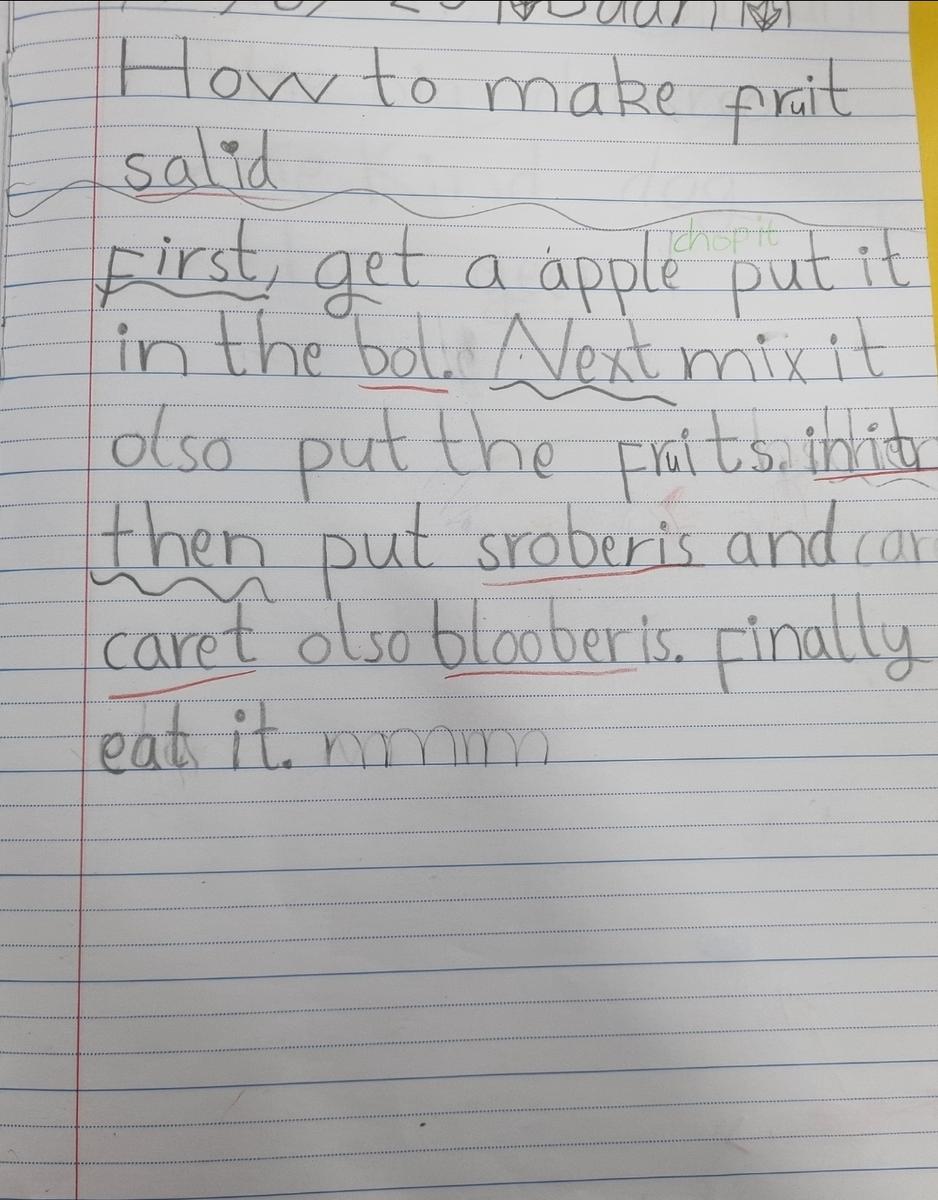 How to make fruit
salid
chop it
First, get a apple put it
in the bol. Next mix it
olso put the fruits.
then put sroberis and car
caret olso blooberis. Finally
eat it. mmmm